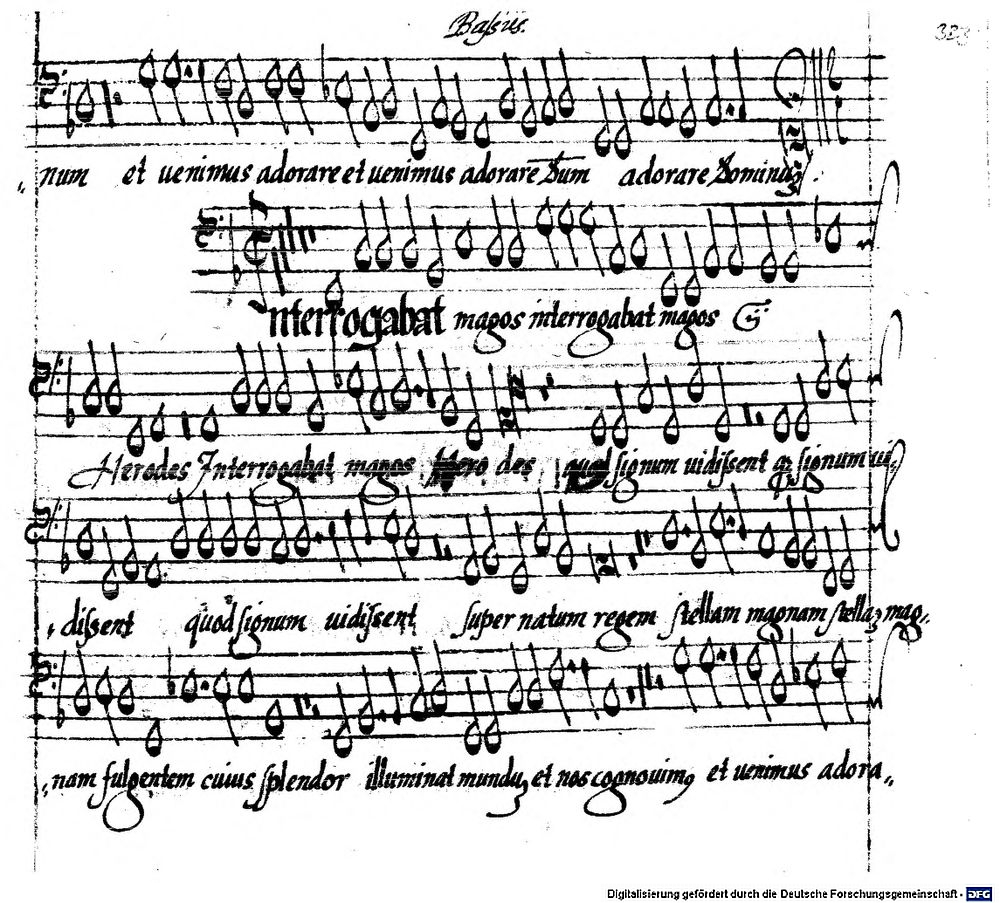 Bassus. 323
num et uenimus adorare et uenimus adorarē Dūm adorare Dominū
Interrogabat magos interrogabat magos
Herodes Interrogabat magos Hero des quod signum uidissent signum ui,,
,,dissent quod signum uidissent super natum regem stellam magnam stellaȝ mag,,
,,nam fulgentem cuius splendor illuminat munduȝ et nos cognouimꝰ et uenimus adora,,
Digitalisierung gefördert durch die Deutsche Forschungsgemeinschaft - DFG